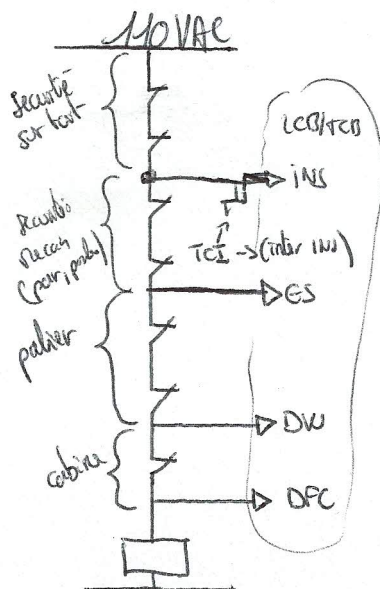 110 VAC
Securité
sur toit
LCB/TCB
INS
Securité
mecan
(par, poulie)
TCI -> (inter INS)
ES
palier
DW
cabine
DFC